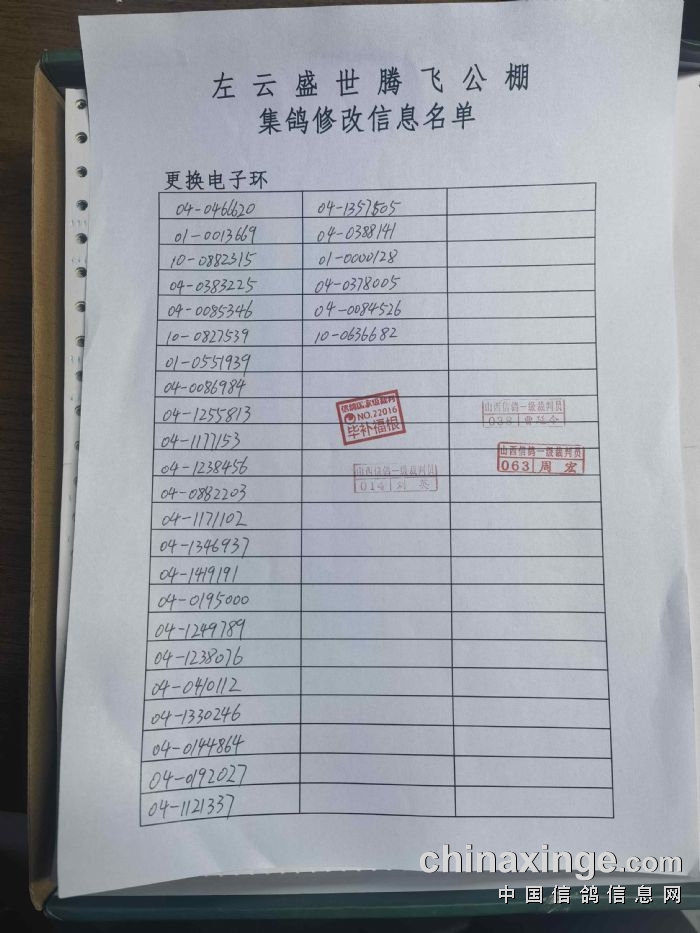 左云盛世腾飞公棚
集鸽修改信息名单
更换电子环
04-0466620 04-1357505
01-0013669 04-0388141
10-0882315 01-0000128
04-0383225 04-0378005
04-0085346 04-0084526
10-0827539 10-0636682
01-0551939
04-0086984
04-1255813
04-1177153
04-1238456
04-0882203
04-1171102
04-1346937
04-1419191
04-0195000
04-1249789
04-1238076
04-0410112
04-1330246
04-0144864
04-0192027
04-1121337
信鸽国家级裁判
NO.22016
毕补福根
山西信鸽一级裁判员
038
山西信鸽一级裁判员
063 周宏
山西信鸽一级裁判员
014 刘英
chinaxinge.com
中国信鸽信息网